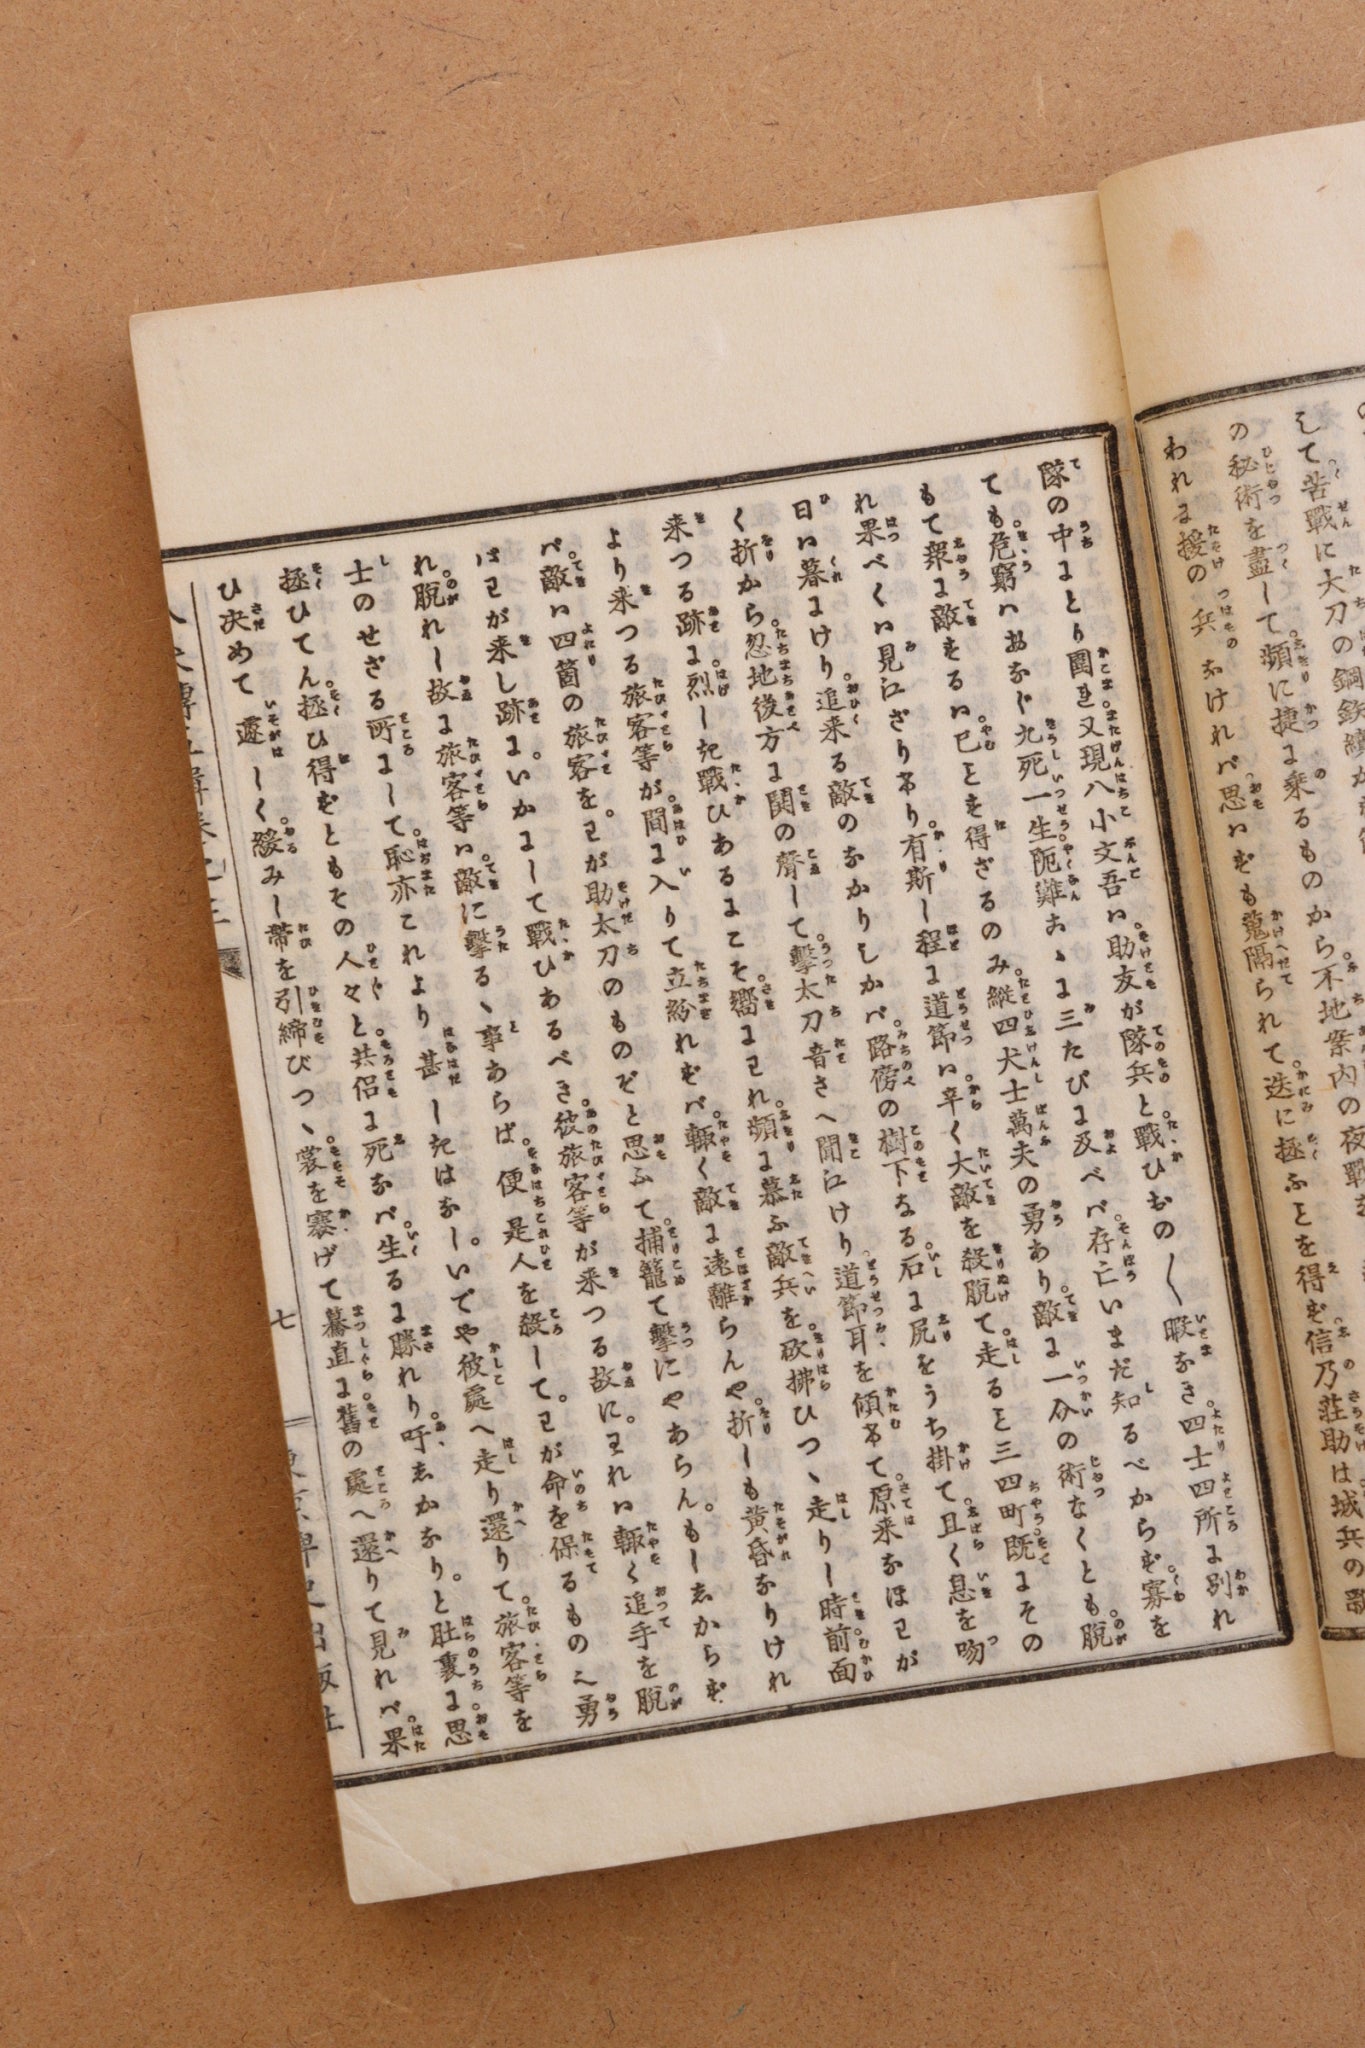 して苦戰に大刀の鋼鉄續か
の秘術を盡して頻に捷に乘るものから不地案內の夜戰
われに援の兵なければ思はずも蒐隔られて迭に拯ふことを得ず信乃莊助は城兵の
隊の中にとり圍まる又現八小文吾は助友が隊兵と戰ひおの〳〵暇なき四士四所に別れ
ても危窮はおなじ九死一生阨難こゝに三たびに及べば存亡いまだ知るべからず寡を
もて衆に敵するは已ことを得ざるのみ縱四犬士萬夫の勇あり敵に一分の術なくとも脫
れ果べくは見江ざりけり有斯し程に道節は辛く大敵を殺脫て走ること三四町既にその
日は暮にけり追来る敵のなかりしかば路傍の樹下なる石に尻をうち掛て且く息を吻
く折から忽地後方に鬨の聲して擊太刀音さへ聞江けり道節耳を傾けて原来なほわが
来つる跡に烈しき戰ひあるにこそ嚮にわれ頻に慕ふ敵兵を砍拂ひつゝ走りし時前面
より来つる旅客等が間に入りて立紛れずば輙く敵に遠離らんや折しも黃昏なりけれ
ば敵は四箇の旅客を。わが助太刀のものぞと思ふて捕籠て擊にやあらん。もししからず
はわが来し跡に。いかにして戰ひあるべき彼旅客等が来つる故に。われは輙く追手を脫
れ脫れし故に旅客等は敵に擊るゝ事あらば。便是人を殺して。わが命を保るものゝ勇
士のせざる所にして恥亦これより甚しきはなし。いでや彼處へ走り還りて旅客等を
拯ひてん拯ひ得ずともその人々と共侶に死なば生るに勝れり吁しかなり。と肚裏に思
ひ决めて遽しく緩みし帶を引締びつゝ裳を褰げて驀直に舊の處へ還りて見れば果
七